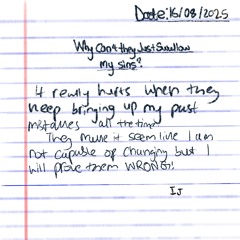 Date: 16/08/2025
Why can't they Just Swallow
my sins?
It really hurts when they
keep bringing up my past
mistakes all the time!
They make it seem like I am
not capable of changing but I
will prove them WRONG!!
IJ